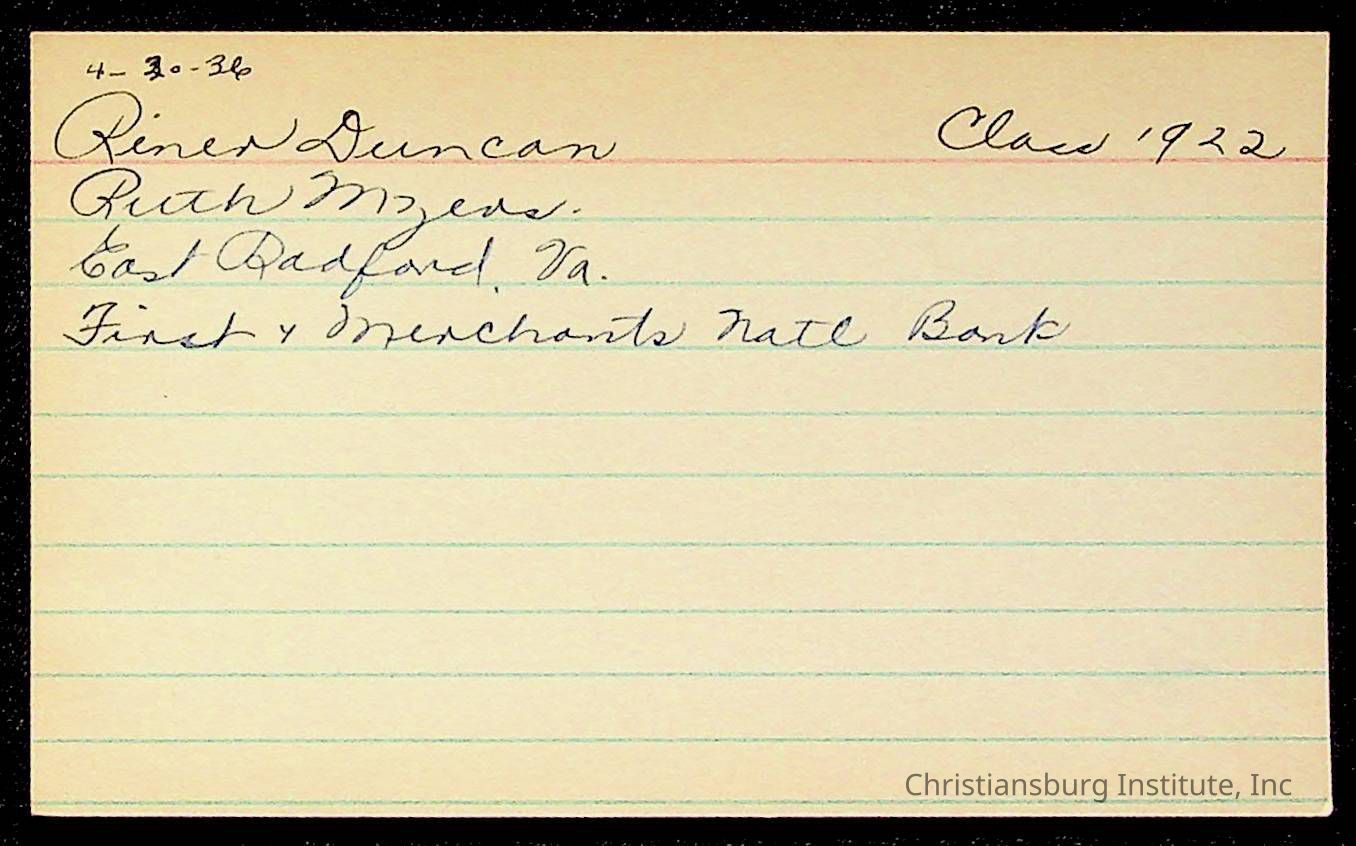 4-30-36
Riner Duncan Class 1922
Ruth Myers.
East Radford, Va.
First & Merchants Natl Bank
Christiansburg Institute, Inc